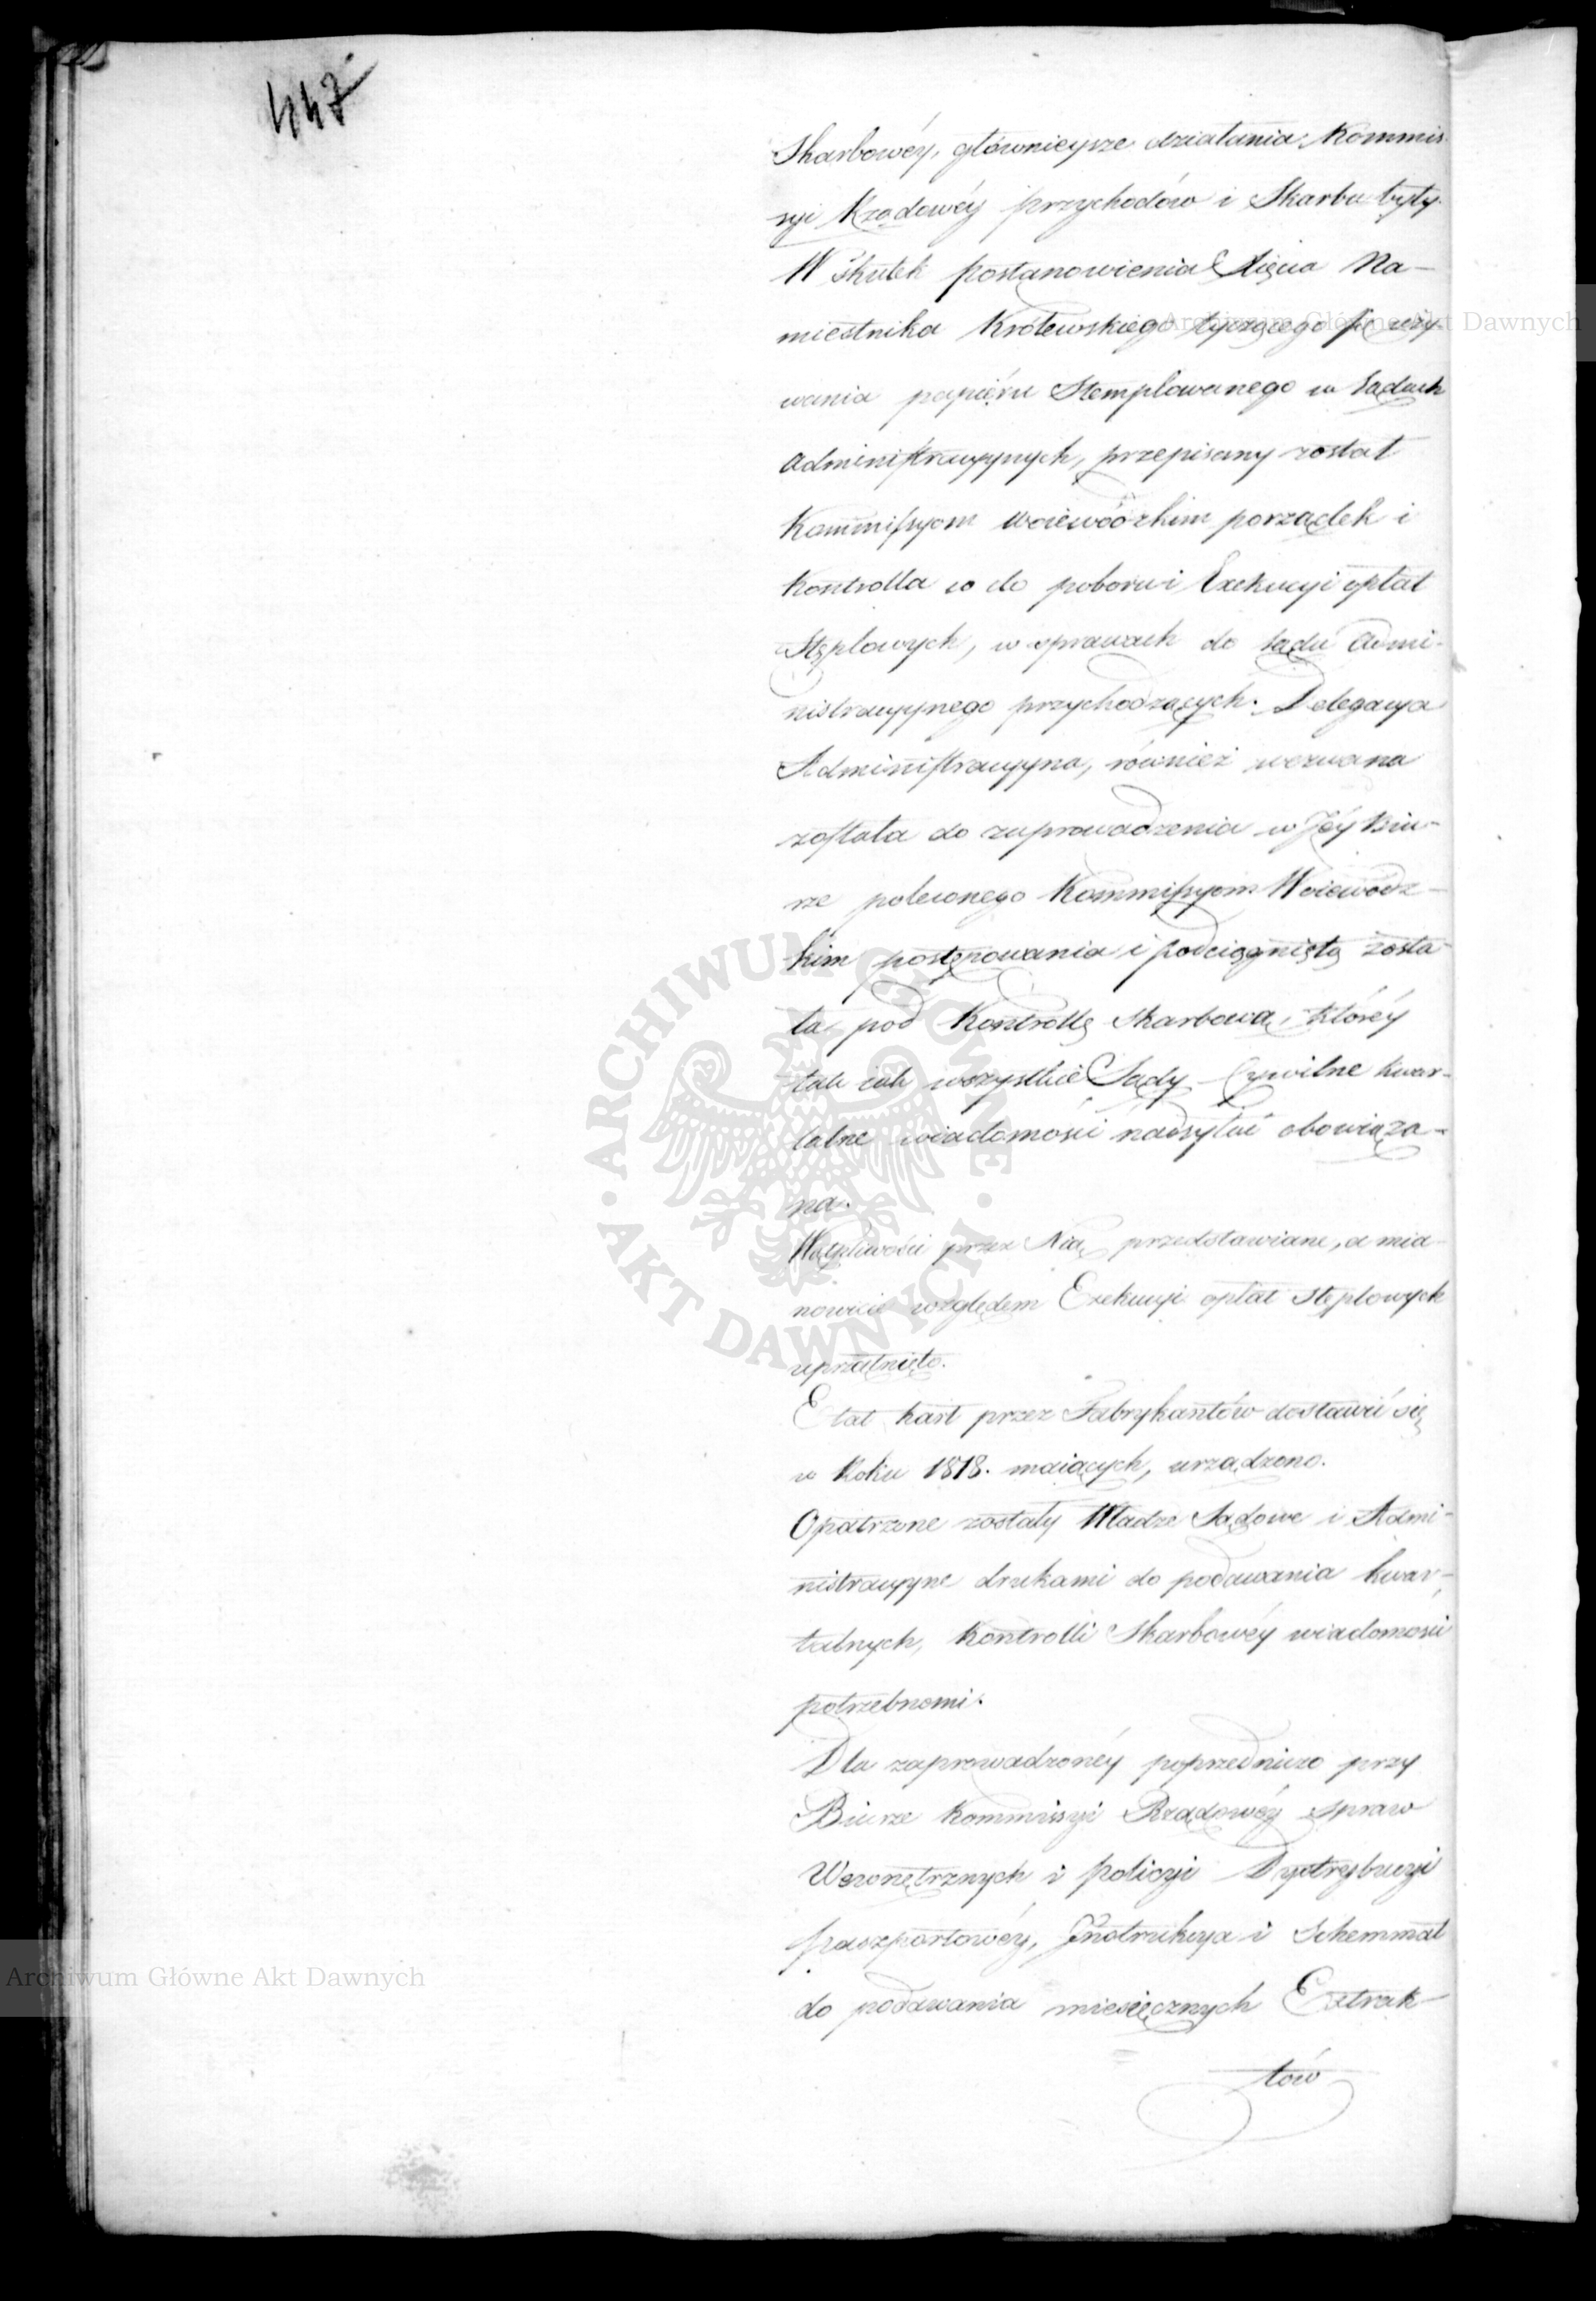 447
Skarbowéy, głównieysze działania Kommis-
syi Rządowéy przychodów i Skarbu były.
W skutek postanowienia Xięcia Na-
miestnika Królewskiego tyczącego się uży-
wania papiéru Stemplowanego w Sądach
Administracyynych, przepisany został
Kommissyom Woiewódzkim porządek i
Kontrolla co do poboru i Exekucyi opłat
Stęplowych, w sprawach do Sądu Admi-
nistracyynego przychodzących. Delegacya
Administracyyna, również wezwana
została do zaprowadzenia w Jéy Biu-
rze poleconego Kommissyom Woiewodz-
kim postępowania i podciągniętą zosta-
ła pod Kontrollę Skarbową, któréy
tak iak wszystkie Sądy Cywilne kwar-
talne wiadomości nadsyłać obowiąza-
na.
Wątpliwości przez Nią przedstawiane, a mia-
nowicie względem Exekucyi opłat stęplowych
uprzątnięto.
Etat kart przez Fabrykantów dostawić się
w Roku 1818. maiących, urządzono.
Opatrzone zostały Władze Sądowe i Admi-
nistracyyne drukami do podawania kwar-
talnych, Kontrolli Skarbowéy wiadomości
potrzebnemi.
Dla zaprowadzonéy poprzedniczo przy
Biurze Kommissyi Rządowéy spraw
Wewnętrznych i policyi Dystrybucyi
paszportowéy, Instrukcya i Schemmat
do podawania miesięcznych Extrak-
tów
Archiwum Główne Akt Dawnych
Archiwum Główne Akt Dawnych
ARCHIWUM GŁÓWNE · AKT DAWNYCH ·